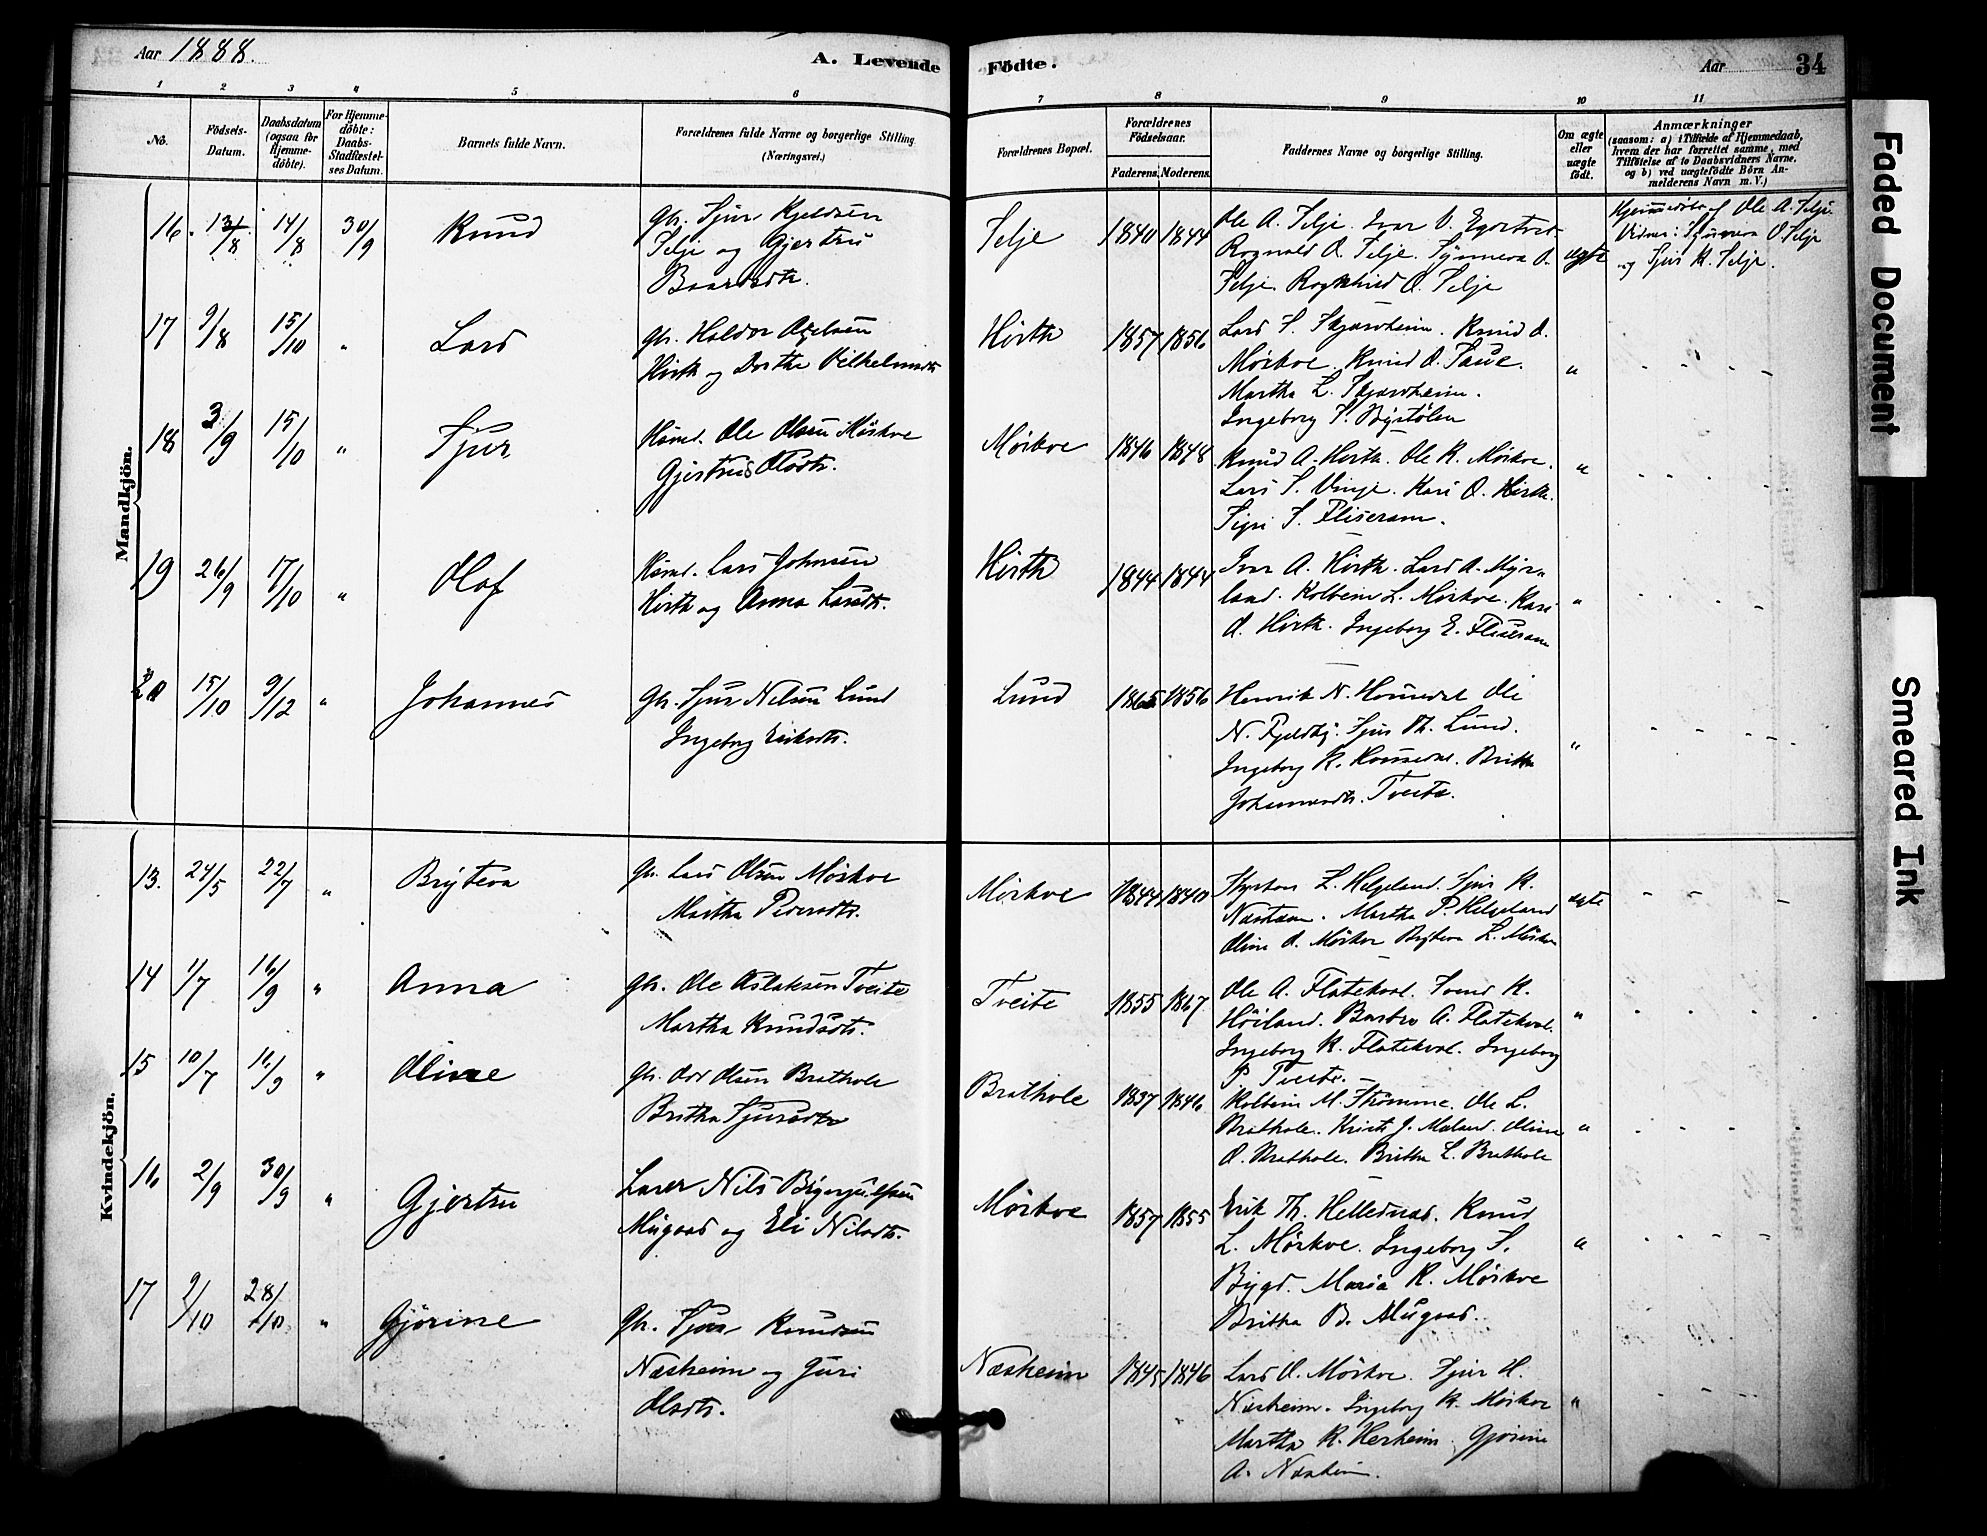 Aar 1888.
A. Levende Fødte.
Aar
34
1 2 3 4 5 6 7 8 9 10 11
No.
Fødsels-
Datum.
Daabsdatum
(ogsaa for
Hjemme-
døbte).
For Hjemme-
døbte:
Daabs-
Stadfæstel-
ses Datum.
Barnets fulde Navn.
Forældrenes fulde Navne og borgerlige Stilling
(Næringsvei.)
Forældrenes Bopæl.
Forældrenes
Fødselsaar.
Faderens. Moderens.
Faddernes Navne og borgerlige Stilling.
Om ægte
eller
uægte
født.
Anmærkninger
(saasom: a) i Tilfælde af Hjemmedaab,
hvem der har forrettet samme, med
Tilføielse af to Daabsvidners Navne,
og b) ved uægtefødte Børn An-
melderens Navn m. V.)
Mandkjön.
16. 13/8 14/8 30/9 Knud
Gbr. Sjur Kjeldsen
Selje og Gjertru
Baardsdtr.
Selje 1840 1844
Ole A. Selje. Ivar O.
Rognald O. Selje. Synneva O.
Selje. Ragnhild O. Selje
ægte
Hjemmedøbt af Ole A. Selje
Vidner: Synneva O. Selje
og Sjur K. Selje.
17 9/8 15/10 " Lars
Gbr. Haldor Axelsen
Hirth og Dorthe Vilhelmsdtr
Hirth 1857 1856
Lars S. Skjærvheim. Knud O.
Mørkve. Knud O. Saue.
Martha L. Skjærvheim.
Ingeborg S. Bystølen
"
18 3/9 15/10 " Sjur
Husmd. Ole Olsen Mørkve
Gjertrud Olsdtr.
Mørkve 1846 1848
Knud A. Hirth. Ole K. Mørkve.
Lars S. Vinje. Kari O. Hirth.
Sigri S. Fliseram.
"
19 26/9 17/10 " Olaf
Husmd. Lars Johnsen
Hirth og Anna Larsdtr.
Hirth 1844 1844
Ivar A. Hirth. Lars A. Myr-
land. Kolbein L. Mørkve. Kari
O. Hirth. Ingeborg E. Fliseram
"
20 15/10 9/12 " Johannes
Gbr. Sjur Nilsen Lund
Ingeborg Eriksdtr.
Lund 1865 1856
Henrik N. Hommedal Ole
N. Sjur Th. Lund.
Ingeborg K. Hommedal. Britha
Johannesdtr. Tveite.
"
Kvindekjön.
13. 24/5 22/7 " Bryteva
Gbr. Lars Olsen Mørkve
Martha Pedersdtr.
Mørkve 1844 1840
L. Helgeland. Sjur K.
Næsheim. Martha P. Helgeland
Oline O. Mørkve Bryteva L. Mørkve
ægte
14 1/7 16/9 " Anna
Gbr. Ole Aslaksen Tveite
Martha Knudsdtr.
Tveite 1855 1867
Ole A. Flatekval. Svend K.
Høiland. Barbro A. Flatekval.
Ingeborg K. Flatekval. Ingeborg
P. Tveite.
"
15 10/7 16/9 " Oline
Gbr. Odd Olsen Brathole
Britha Sjursdtr
Brathole 1837 1846
Kolbein M. Strømme. Ole L.
Brathole. Kristi J. Mæland. Oline
O. Brathole. Britha L. Brathole
"
16 2/9 30/9 " Gjertru
Lærer Nils Brynjulfsen
Mugaas og Eli Nilsdtr.
Mørkve 1857 1855
Erik Th. Hellesnæs. Knud
L. Mørkve. Ingeborg S.
Bygd. Maria K. Mørkve
Britha B. Mugaas.
"
17 9/10 28/10 " Gjørine
Gbr. Sjur Knudsen
Næsheim og Guri
Olsdtr.
Næsheim 1845 1846
Lars O. Mørkve. Sjur H.
Næsheim. Ingeborg K. Mørkve
Martha K. Herheim. Gjørine
A. Næsheim.
"
Faded Document
Smeared Ink